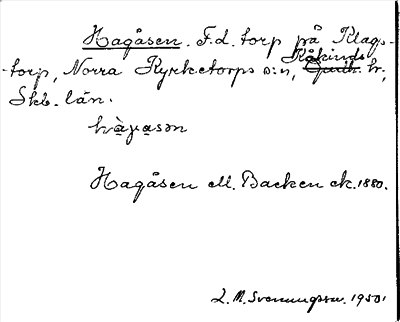 Hagåsen. F.d. torp på Klags-
torp, Norra Kyrketorps s:n, Kåkinds hr,
Skb. län.
Hagåsen ell. Backen ek. 1880.
L. M. Svenungsson. 1950